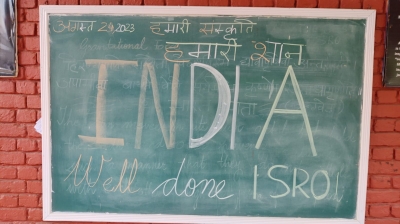 अगस्त 29 2023 हमारी संस्कृति
हमारी शान
INDIA
Well done ISRO!